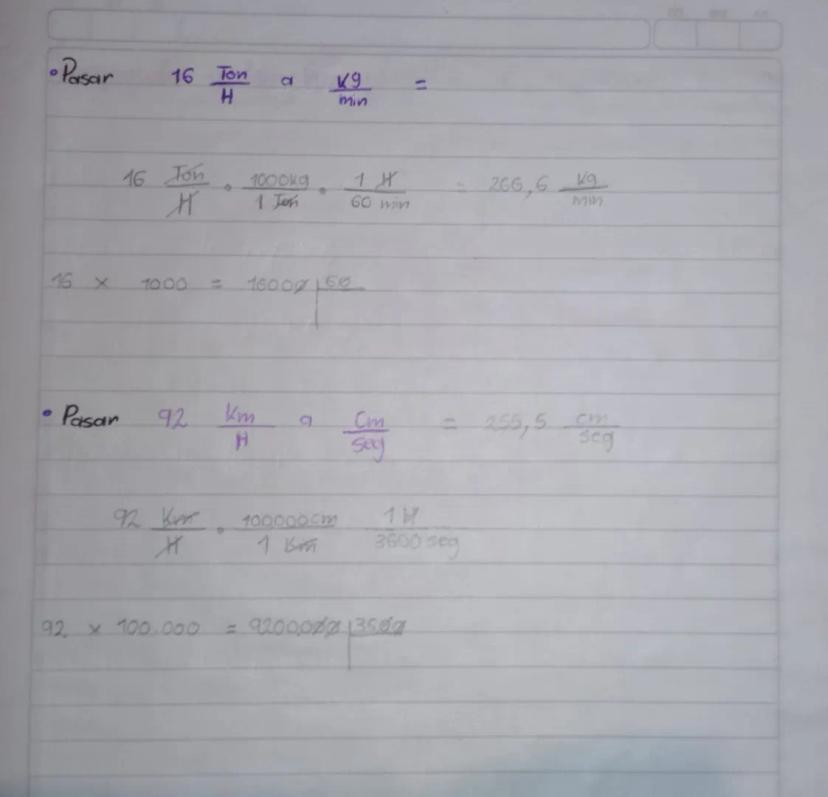 • Pasar 16 Ton/H a kg/min =
16 Ton/H • 1000kg/1 Ton • 1 H/60 min = 266,6 kg/min
16 × 1000 = 16000 | 60
• Pasar 92 Km/H a Cm/seg = 255,5 cm/seg
92 Km/H • 100000cm/1 Km 1 H/3600 seg
92 × 100.000 = 9200.000 | 3600